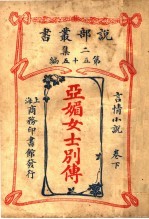 說部叢書
二集
第五十五編
言情小說 卷下
亞媚女士別傳
上海商務印書館發行